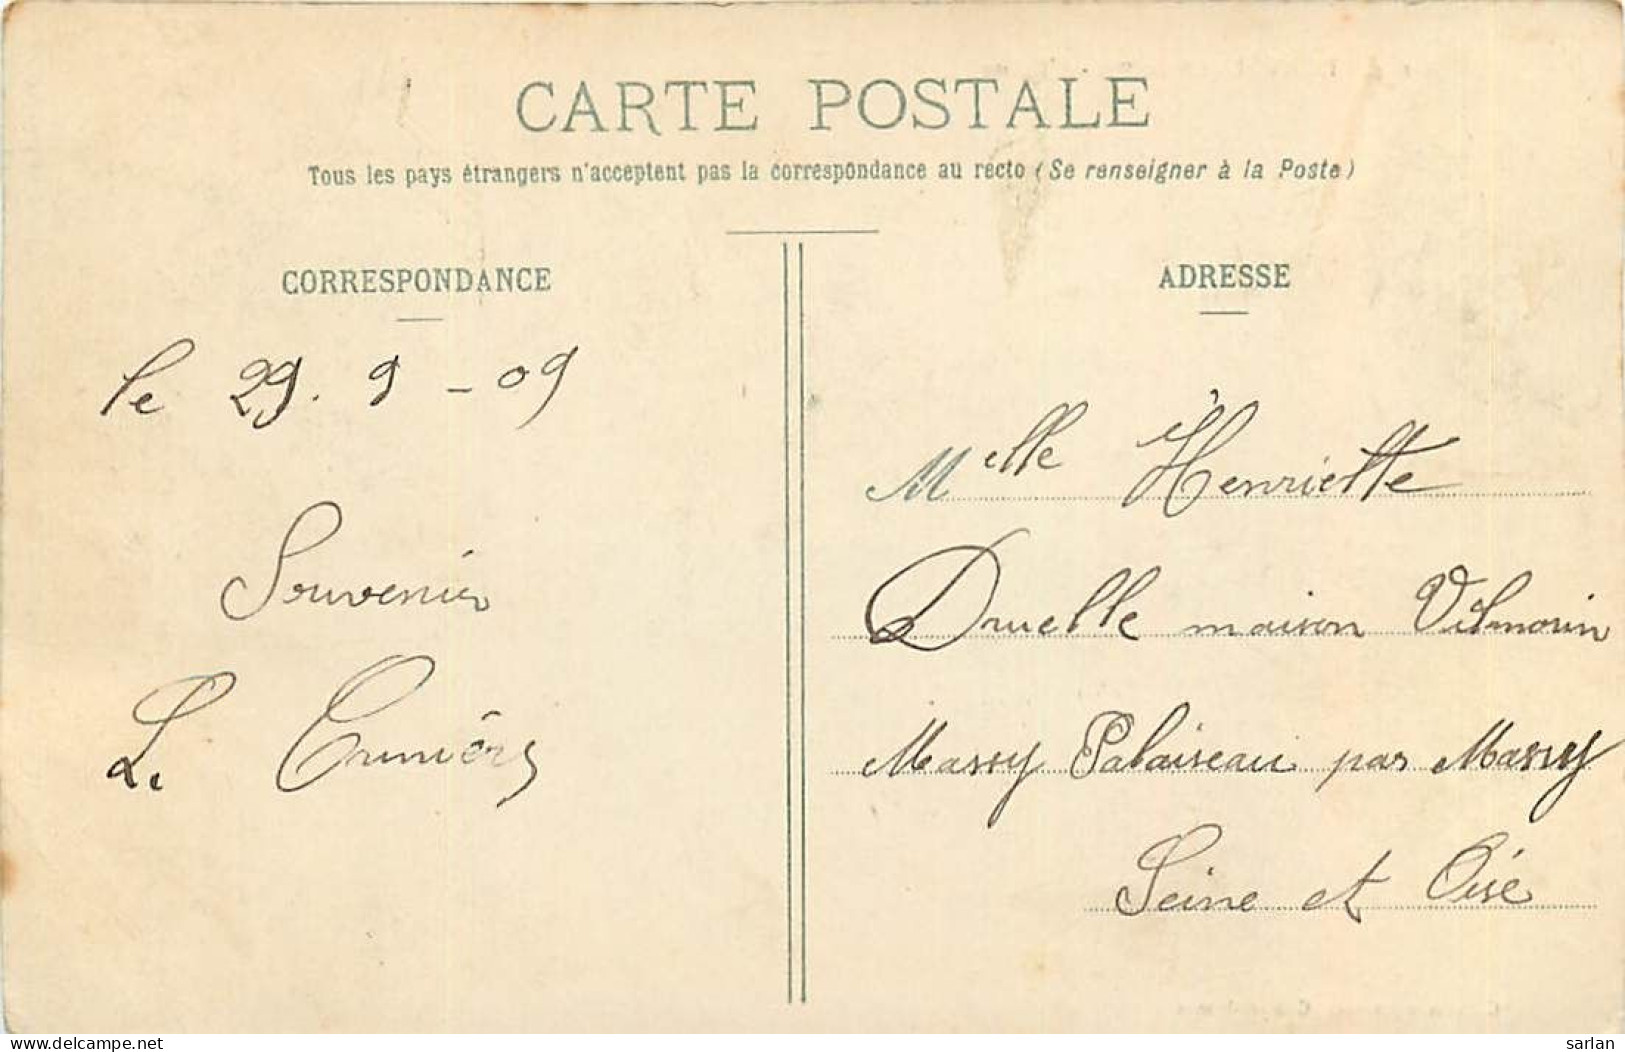 CARTE POSTALE
Tous les pays étrangers n'acceptent pas la correspondance au recto (Se renseigner à la Poste)
CORRESPONDANCE
le 29. 9 - 09
Souvenir
L.
ADRESSE
Melle Henriette
Druelle maison Vilmorin
Massy Palaiseau par Massy
Seine et Oise
delcampe.net
sarlan